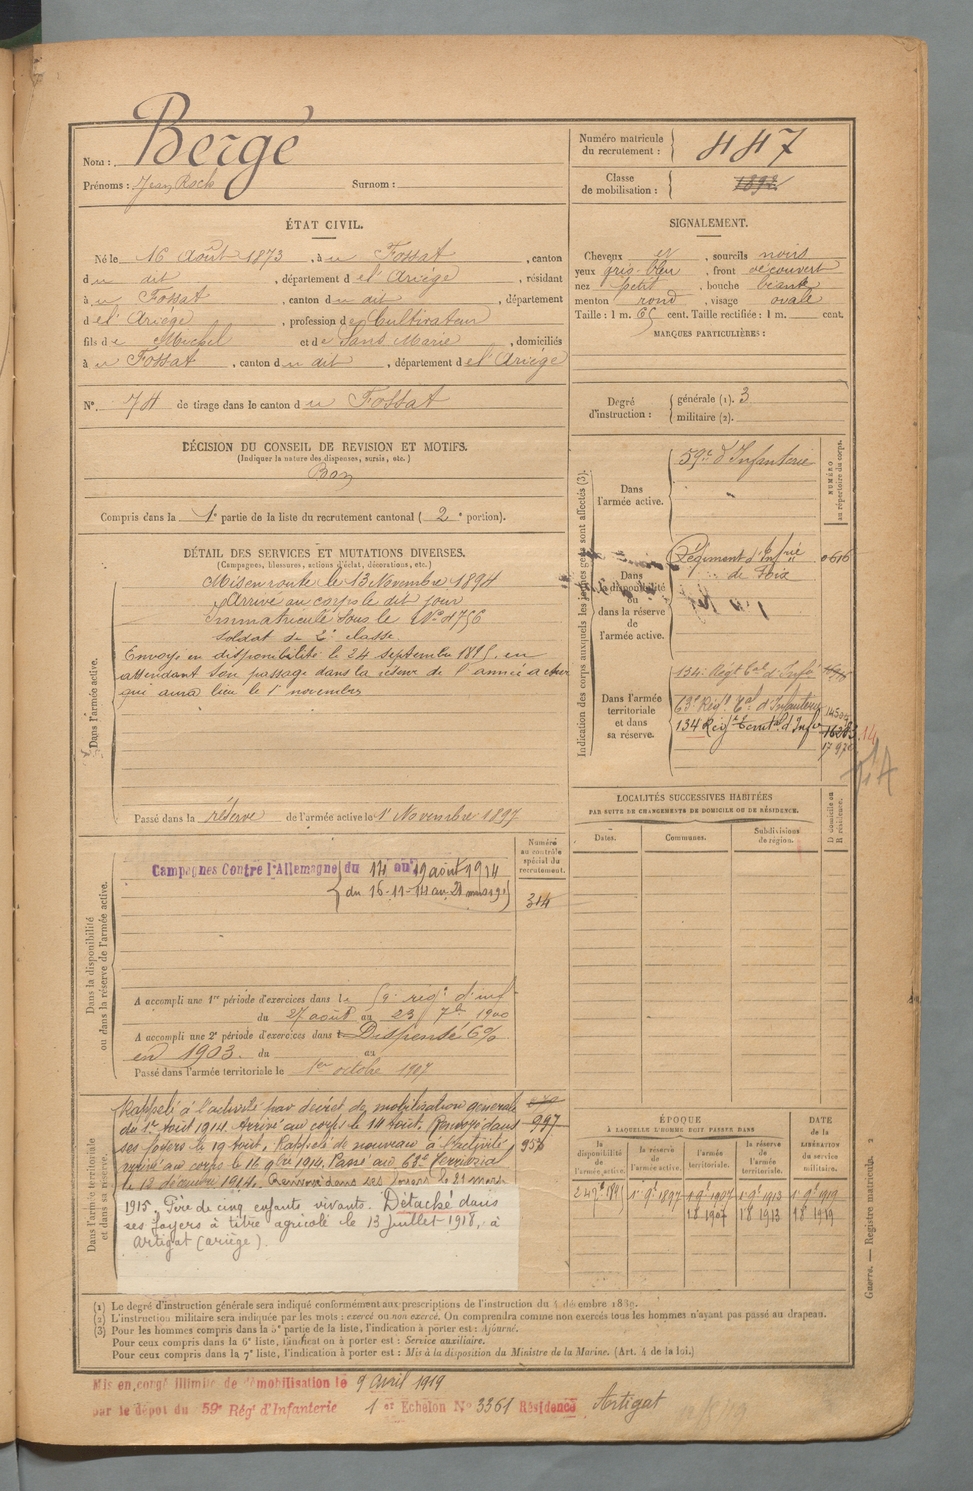 Nom : Bergé
Prénoms : Jean Roch Surnom :
Numéro matricule du recrutement : 447
Classe de mobilisation : 1892
ÉTAT CIVIL.
Né le 16 Août 1873, à u Fossat, canton
du dit, département de l'Ariège, résidant
à u Fossat, canton du dit, département
de l'Ariège, profession de Cultivateur
fils de Michel et de Sans Marie, domiciliés
à u Fossat, canton du dit, département de l'Ariège
N° 74 de tirage dans le canton du Fossat
SIGNALEMENT.
Cheveux et, sourcils noirs
yeux gris-bleu, front découvert
nez petit, bouche béante
menton rond, visage ovale
Taille : 1 m. 65 cent. Taille rectifiée : 1 m. cent.
MARQUES PARTICULIÈRES :
Degré d'instruction : générale (1). 3
militaire (2).
DÉCISION DU CONSEIL DE REVISION ET MOTIFS.
(Indiquer la nature des dispenses, sursis, etc.)
Bon
Compris dans la 1e partie de la liste du recrutement cantonal (2e portion).
DÉTAIL DES SERVICES ET MUTATIONS DIVERSES.
(Campagnes, blessures, actions d'éclat, décorations, etc.)
Dans l'armée active.
Mis en route le 13 Novembre 1894
Arrivé au corps le dit jour
Immatriculé sous le N° 4756
soldat de 2e classe.
Envoyé en disponibilité le 24 septembre 1895, en
attendant son passage dans la réserve de l'armée active
qui aura lieu le 1er novembre
Passé dans la réserve de l'armée active le 1er Novembre 1897
Indication des corps auxquels les jeunes gens sont affectés (3).
NUMÉRO au répertoire du corps.
Dans l'armée active. 59e d'Infanterie
Dans la disponibilité ou dans la réserve de l'armée active.
Régiment d'Infrie 0616
de Foix
Dans l'armée territoriale et dans sa réserve.
134e Régt tal d'Infie
63e Régt tal d'Infanterie
134 Régt territal d'Infie
LOCALITÉS SUCCESSIVES HABITÉES
PAR SUITE DE CHANGEMENTS DE DOMICILE OU DE RÉSIDENCE.
Dates. Communes. Subdivisions de région.
D domicile ou R résidence.
Dans la disponibilité ou dans la réserve de l'armée active.
Numéro au contrôle spécial du recrutement.
Campagnes Contre l'Allemagne du 14 au 19 août 1914
du 16-11-14 au 21 mars 191
314
A accompli une 1re période d'exercices dans le 59e régt d'inf
du 27 août au 23 7bre 1900
A accompli une 2e période d'exercices dans Dispensé 6%
en 1903. du au
Passé dans l'armée territoriale le 1er octobre 1907
Dans l'armée territoriale et dans sa réserve.
Rappelé à l'activité par décret de mobilisation générale
du 1er Août 1914. Arrivé au corps le 14 Août. Renvoyé dans 997
ses foyers le 19 Août. Rappelé de nouveau à l'activité, 956
arrivé au corps le 16 9bre 1914. Passé au 63e Territorial
le 12 décembre 1914. Renvoyé dans ses foyers le 21 mars
1915. Père de cinq enfants vivants. Détaché dans
ses foyers à titre agricole le 13 Juillet 1918, à
Artigat (ariège).
ÉPOQUE
À LAQUELLE L'HOMME DOIT PASSER DANS
DATE de la LIBÉRATION du service militaire.
la disponibilité de l'armée active. la réserve de l'armée active. l'armée territoriale. la réserve de l'armée territoriale.
24 7bre 1895 1er 9bre 1897 1er 9bre 1907 1er 9bre 1913 1er 9bre 1919
1 8 1907 1 8 1913 1 8 1919
(1) Le degré d'instruction générale sera indiqué conformément aux prescriptions de l'instruction du 4 décembre 1889.
(2) L'instruction militaire sera indiquée par les mots : exercé ou non exercé. On comprendra comme non exercés tous les hommes n'ayant pas passé au drapeau.
(3) Pour les hommes compris dans la 5e partie de la liste, l'indication à porter est : Ajourné.
Pour ceux compris dans la 6e liste, l'indication à porter est : Service auxiliaire.
Pour ceux compris dans la 7e liste, l'indication à porter est : Mis à la disposition du Ministre de la Marine. (Art. 4 de la loi.)
Guerre. — Registre matricule. 2
Mis en congé illimité de démobilisation le 9 avril 1919
par le dépôt du 59e Régt d'Infanterie 1er Echelon N° 3361 Résidence Artigat